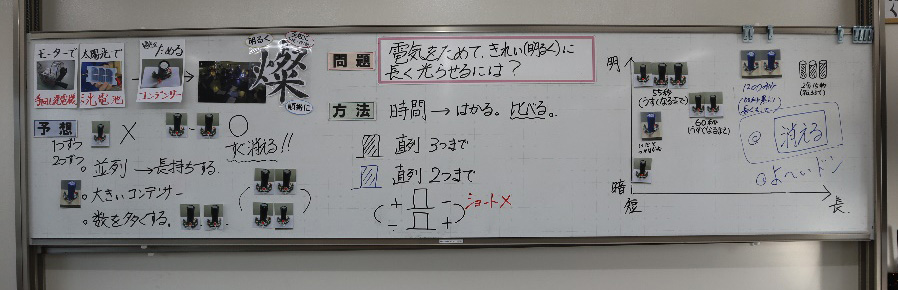 モーターで
太陽光で
ためる
コンデンサー
光電池
明るく
燦
問題
電気をためて、きれい(明るく)に
長く光らせるには?
予想
1つずつ
2つずつ
×
○
すぐ消える!!
。並列→長持ちする
。大きいコンデンサー
。数を多くする。
方法
時間→はかる。比べる。
直列 3つまで
直列 2つまで
+ −
− +
ショート×
明
暗
短
長
55秒
(うすくなるまで)
60秒
(うすくなるまで)
消える
よーいドン